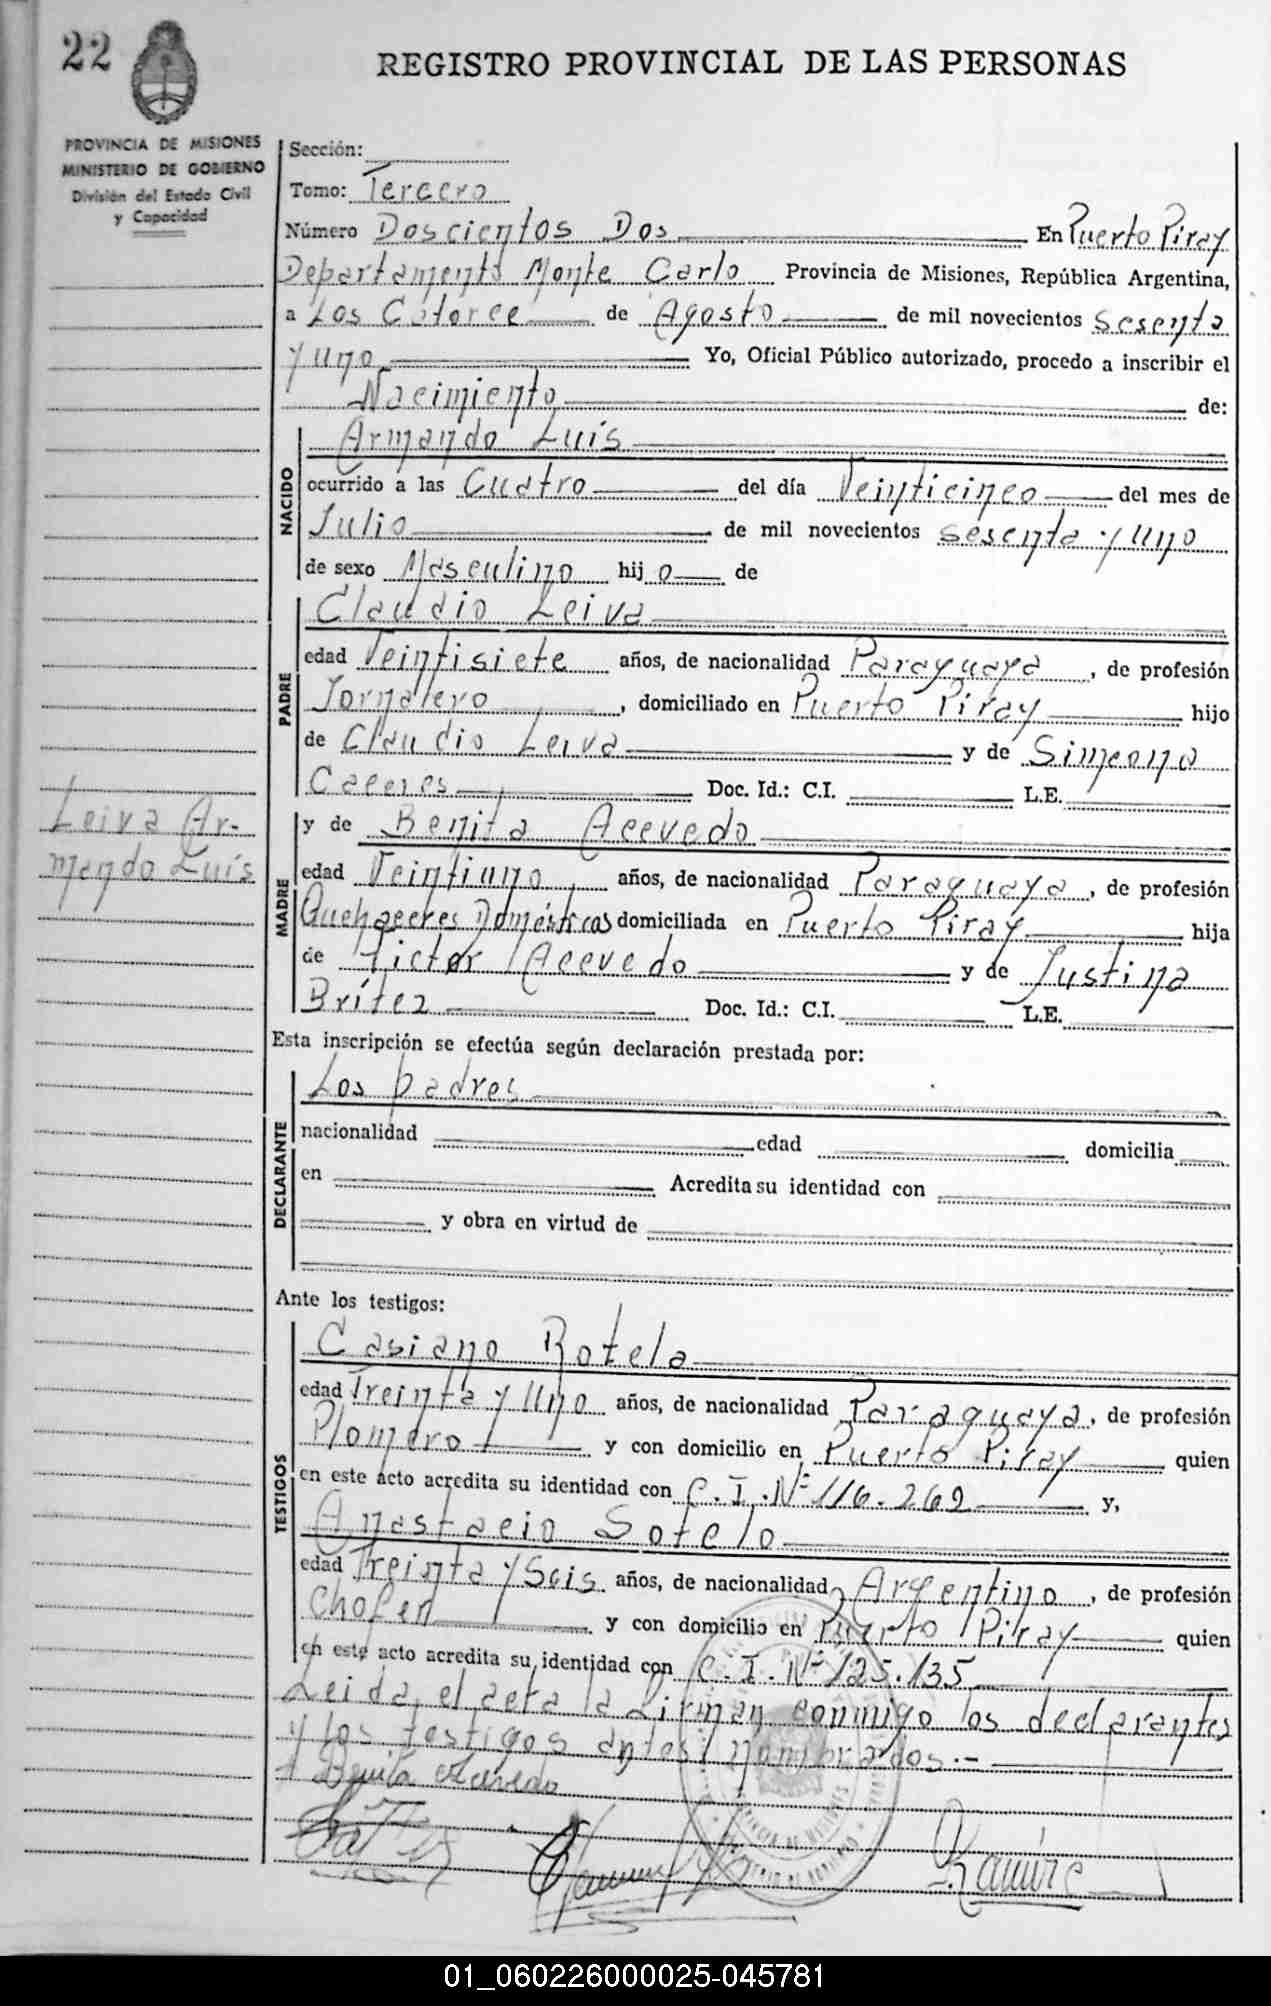 22
REGISTRO PROVINCIAL DE LAS PERSONAS
PROVINCIA DE MISIONES
MINISTERIO DE GOBIERNO
División del Estado Civil
y Capacidad
Sección:
Tomo: Tercero
Número Doscientos Dos En Puerto Piray
Departamento Monte Carlo Provincia de Misiones, República Argentina,
a Los Catorce de Agosto de mil novecientos sesenta
y uno Yo, Oficial Público autorizado, procedo a inscribir el
Nacimiento de:
NACIDO
Armando Luis
ocurrido a las Cuatro del día Veinticinco del mes de
Julio de mil novecientos sesenta y uno
de sexo Masculino hij o de
PADRE
Claudio Leiva
edad Veintisiete años, de nacionalidad Paraguaya, de profesión
Jornalero, domiciliado en Puerto Piray hijo
de Claudio Leiva y de Simeona
Caceres Doc. Id.: C.I. L.E.
Leiva Ar-
mando Luis
MADRE
y de Benita Acevedo
edad Veintiuno años, de nacionalidad Paraguaya, de profesión
Quehaceres Domésticos domiciliada en Puerto Piray hija
de Victor Acevedo y de Justina
Brítez Doc. Id.: C.I. L.E.
Esta inscripción se efectúa según declaración prestada por:
DECLARANTE
Los padres
nacionalidad edad domicilia
en Acredita su identidad con
y obra en virtud de
Ante los testigos:
TESTIGOS
Casiano Rotela
edad Treinta y Uno años, de nacionalidad Paraguaya, de profesión
Plomero y con domicilio en Puerto Piray quien
en este acto acredita su identidad con C.I. Nº 116.262 y,
Anastacio Sotelo
edad Treinta y Seis años, de nacionalidad Argentino, de profesión
Chofer y con domicilio en Puerto Piray quien
en este acto acredita su identidad con C.I. Nº 125.135
Leida el acta la firman conmigo los declarantes
y los testigos antes nombrados.-
Benita Acevedo
Ramire
01_060226000025-045781